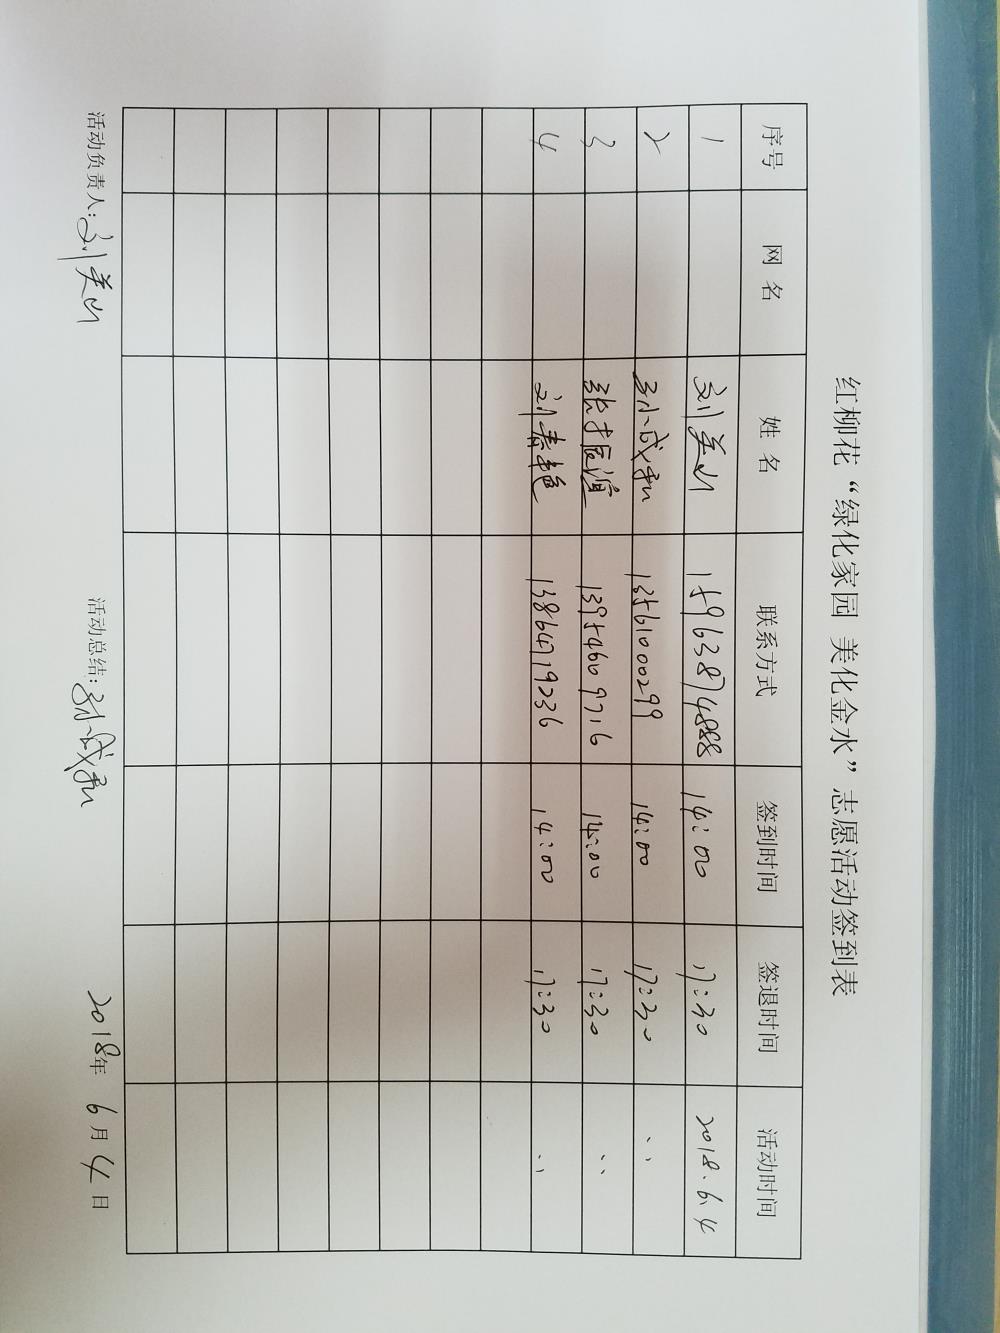 红柳花“绿化家园 美化金水”志愿活动签到表
序号 网名 姓名 联系方式 签到时间 签退时间 活动时间
1 刘美山 15963874888 14:00 17:30 2018.6.4
2 孙成利 13561000299 14:00 17:30 〃
3 13954609716 14:00 17:30 〃
4 刘春艳 13864719236 14:00 17:30 〃
活动负责人:刘美山 活动总结:孙成利 2018年 6月 4日